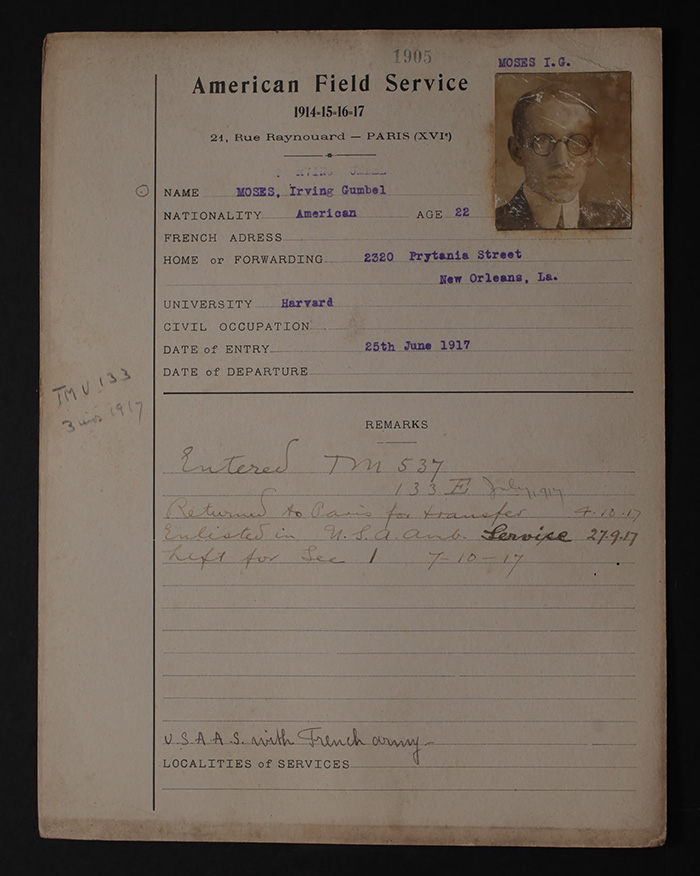 1905
MOSES I.G.
American Field Service
1914-15-16-17
21, Rue Raynouard — PARIS (XVIe)
NAME MOSES, Irving Gumbel
NATIONALITY American AGE 22
FRENCH ADRESS
HOME or FORWARDING 2320 Prytania Street
New Orleans, La.
UNIVERSITY Harvard
CIVIL OCCUPATION
DATE of ENTRY 25th June 1917
DATE of DEPARTURE
TMU 133
3 1917
REMARKS
Entered TM 537
133 E July, 1917
Returned to Paris for transfer 4.10.17
Enlisted in U.S.A. Amb. Service 27.9.17
Left for Sec 1 7-10-17
U.S.A.A.S. with French army
LOCALITIES of SERVICES